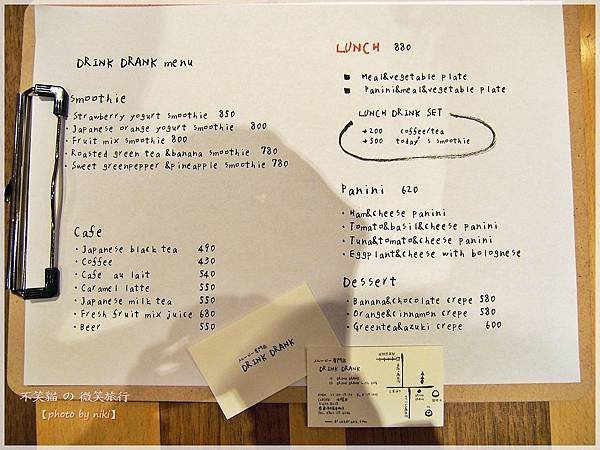 DRINK DRANK menu
Smoothie
・Strawberry yogurt smoothie 850
・Japanese orange yogurt smoothie 800
・Fruit mix smoothie 800
・Roasted green tea & banana smoothie 780
・Sweet greenpepper & pineapple smoothie 780
Cafe
・Japanese black tea 490
・Coffee 430
・Cafe au lait 540
・Caramel latte 550
・Japanese milk tea 550
・Fresh fruit mix juice 680
・Beer 550
LUNCH 880
■ Meal&vegetable plate
■ Panini&meal&vegetable plate
LUNCH DRINK SET
+200 coffee/tea
+500 today's smoothie
Panini 620
・Ham&cheese panini
・Tomato&basil&cheese panini
・Tuna&tomato&cheese panini
・Eggplant&cheese with bolognese
Dessert
・Banana&chocolate crepe 580
・Orange&cinnamon crepe 580
・Greentea&azuki crepe 600
スムージー専門店
DRINK DRANK
スムージー専門店
DRINK DRANK
不笑貓 の 微笑旅行
【photo by niki】